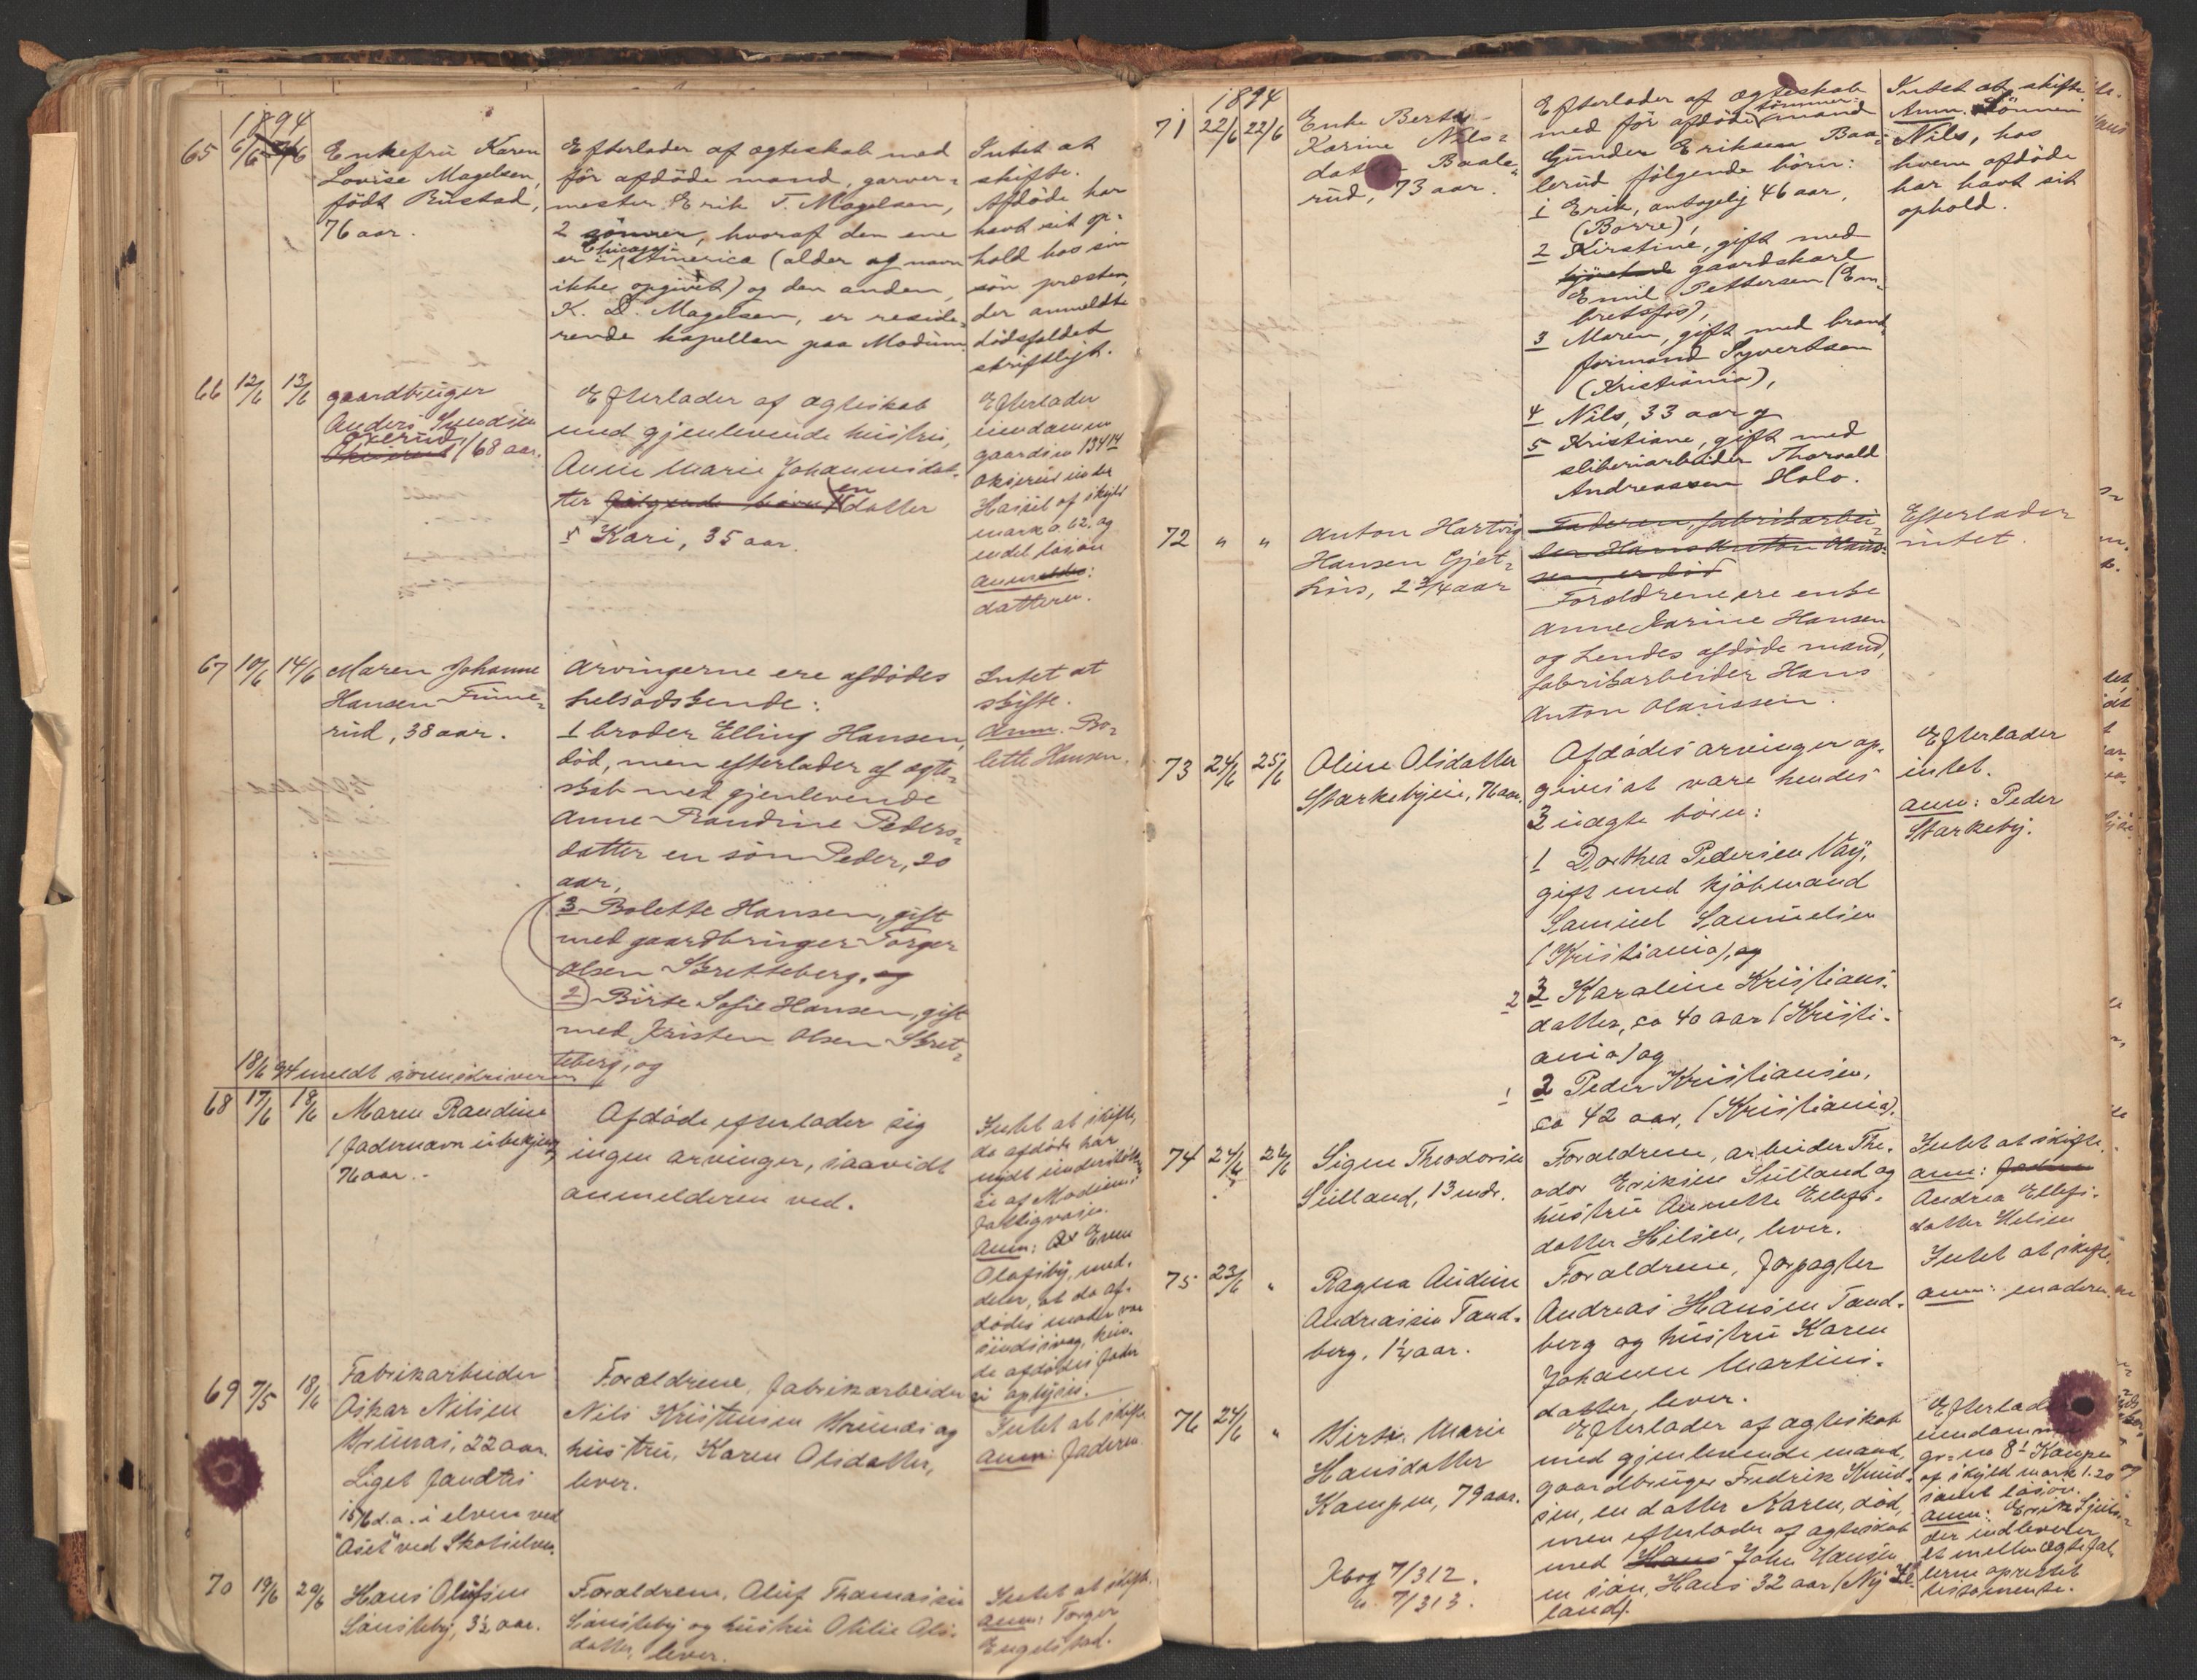 1894
65 6/6 6/6 Enkefru Karen
Lovise Magelsen,
født Rustad,
76 aar.
Efterlader af ægteskab med
før afdøde mand, garver-
mester Erik T. Magelsen,
2 sønner, hvoraf den ene
er i Chicago America (alder og navn
ikke opgivet) og den anden,
K. D. Magelsen, er reside-
rende kapellan paa Modum.
Intet at
skifte.
Afdøde har
havt sit op-
hold hos sin
søn presten,
der anmeldte
dødsfaldet
skriftligt.
66 12/6 13/6 gaardbruger
Anders Svendsen
Oxerud, 68 aar.
Efterlader af ægteskab
med gjenlevende hustru,
Anne Marie Johannesdat-
ter følgende børn en datter
Kari, 35 aar.
Efterlader
eiendommen
gaardsno 134
Okserud under
Hassel af skyld
mark 0.62. og
endel løsøre
Anmelder:
datteren.
67 10/6 14/6 Maren Johanne
Hansen Fume-
rud, 38 aar.
Arvingerne ere afdødes
helsødskende:
1 broder Elling Hansen,
død, men efterlader af ægte-
skab med gjenlevende
Anne Randine Peders-
datter en søn Peder, 20
aar,
3 Bolette Hansen, gift
med gaardbruger Torger
Olsen Skretteberg, og
2) Birte Sofie Hansen, gift
med Kristen Olsen Skret-
teberg, og
Intet at
skifte.
Anm. Bo-
lette Hansen.
18/6 94 meldt sorenskriveren
68 17/6 18/6 Maren Randine
(fadernavn ubekjendt)
76 aar.
Afdøde efterlader sig
ingen arvinger, saavidt
anmelderen ved.
Intet at skifte,
da afdøde har
nydt understøttel-
se af Modums
fattigvæsen.
Anm: Even
Olafsby, med-
deler, at da af-
dødes moder var
sindssvag, kun-
de afdødes fader
ei oplyses.
69 7/5 18/6 Fabrikarbeider
Oskar Nilsen
Vrunas, 22 aar.
Liget fandtes
15/6 d.a. i elven ved
"Åset" ved Skotselven.
Forældrene, fabrikarbeider
Nils Kristensen Vrunas og
hustru, Karen Olsdatter,
lever.
Intet at skifte
Anm: Faderen
70 19/6 20/6 Hans Olufsen
Sønsteby, 3½ aar.
Forældrene, Oluf Thomassen
Sønsteby og hustru Otilie Ols-
datter, lever.
Intet at skifte.
Anm: Torger
Engelstad.
1894
71 22/6 22/6 Enke Berthe
Karine Nils-
datter Baale-
rud, 73 aar.
Efterlader af ægteskab
med før afdøde tømmermand
Gunder Eriksen Baa-
lerud følgende børn:
1 Erik, antagelig 46 aar,
(Borre),
2 Kirstine, gift med
gaardskarl
Emil Pettersen (Em-
bretsfos),
3 Maren, gift med brand-
formand Syvertsen
(Kristiania),
4 Nils, 33 aar og
5 Kristiane, gift med
sliberiarbeider Thorvald
Andreassen Holo.
Intet at skifte
Anm. Sønnen
Nils, hos
hvem afdøde
har havt sit
ophold.
72 " " Anton Hartvig
Hansen Gjet-
hus, 2¾ aar
Faderen, fabrikarbei-
der Hans Anton Olaus-
sen, er død
Forældrene ere enke
Anne Karine Hansen
og hendes afdøde mand,
fabrikarbeider Hans
Anton Olaussen.
Efterlader
intet.
73 24/6 25/6 Oline Olsdatter
Starkebyeie, 76 aar.
Afdødes arvinger op-
gives at være hendes
3 uægte børn:
1 Dorthea Pedersen Vaş,
gift med kjøbmand
Samuel Samuelsen
(Kristiania), og
2 3 Karoline Kristians-
datter, ca 40 aar (Kristi-
ania) og
1 2 Peder Kristiansen,
ca 42 aar, (Kristiania).
Efterlader
intet.
Anm: Peder
Starkeby.
74 24/6 26/6 Signe Theodorsen
Sulland, 13 mdr.
Forældrene, arbeider The-
odor Eriksen Sulland og
hustru Annette Ellefs-
datter Hilsen, lever.
Intet at skifte.
Anm: Faderen
Andrea Ellefs-
datter Hilsen
75 23/6 " Ragna Audine
Andreassen Tand-
berg, 1¼ aar.
Forældrene, forpagter
Andreas Hansen Tand-
berg og hustru Karen
Johanne Martins-
datter, lever.
Intet at skifte,
Anm: moderen.
76 24/6 " Kirsti Marie
Hansdatter
Kampen, 79 aar.
Kbog 7/312.
" 7/313.
Efterlader af ægteskab
med gjenlevende mand,
gaardbruger Fredrik Knud-
sen, en datter Karen, død,
men efterlader af ægteskab
med Hans John Hansen
en søn, Hans 32 aar (Ny Se-
land).
Efterlader
eiendommen
gr-no 8 Kampen
af skyld mark 1.20
samt løsøre.
Anm: Erik
der indleverer
et mellem ægtefol-
kene oprettet
testamente.